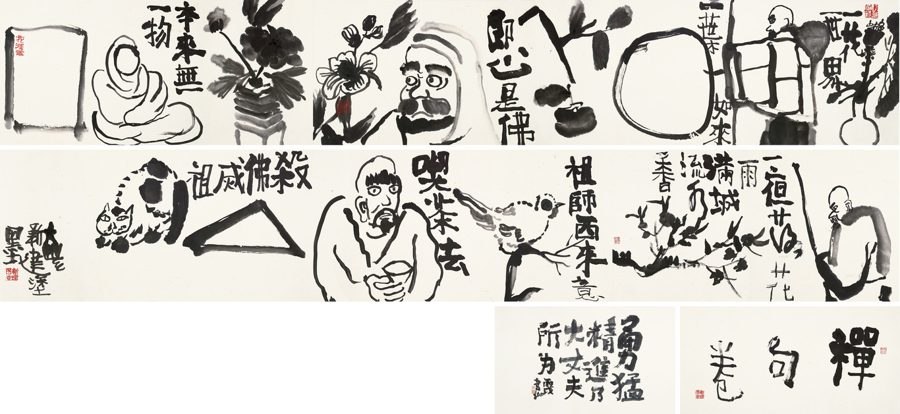 禪
句
半卷
勇猛
精進乃
大丈夫
所為
一花
一世界
一葉
如來
即心是佛
本來無
一物
一夜落花
雨
滿城
流水
香
祖師西來意
喫茶去
殺佛滅祖